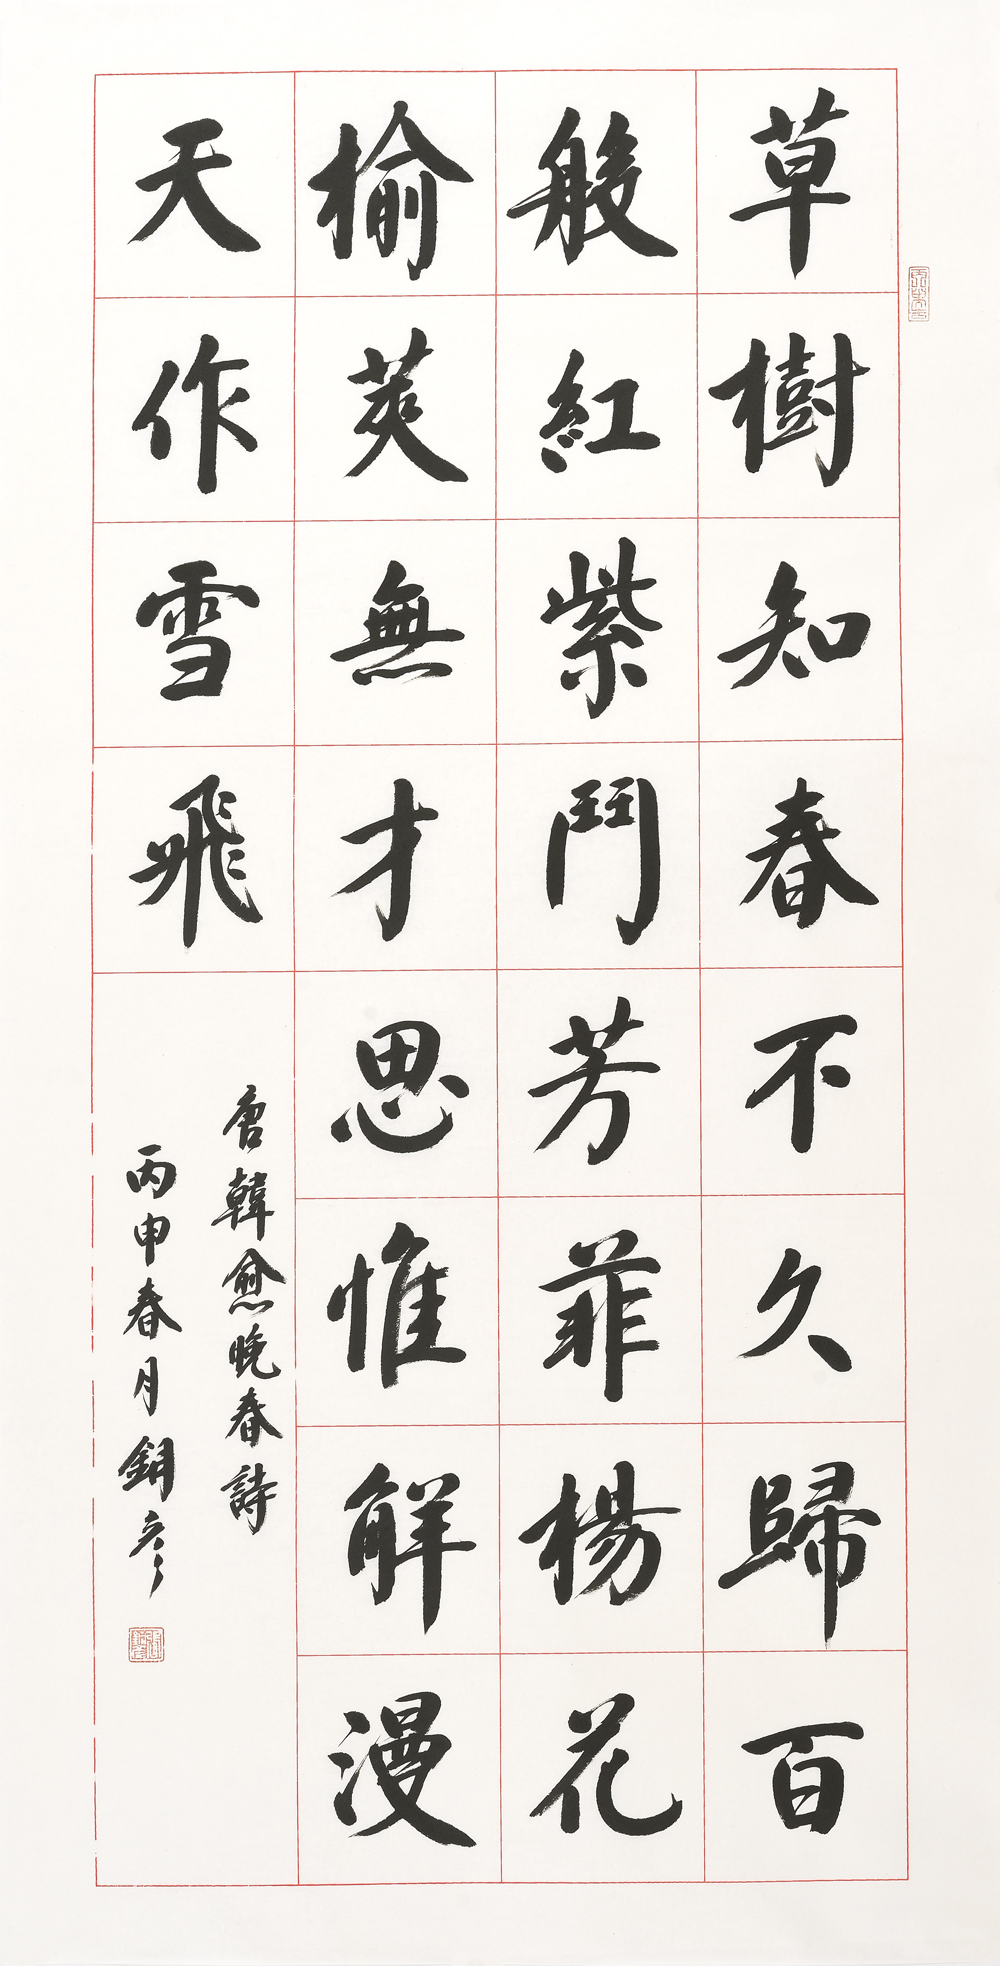 草樹知春不久歸百
般紅紫鬥芳菲楊花
榆莢無才思惟解漫
天作雪飛
唐韓愈晚春詩
丙申春月銅彦